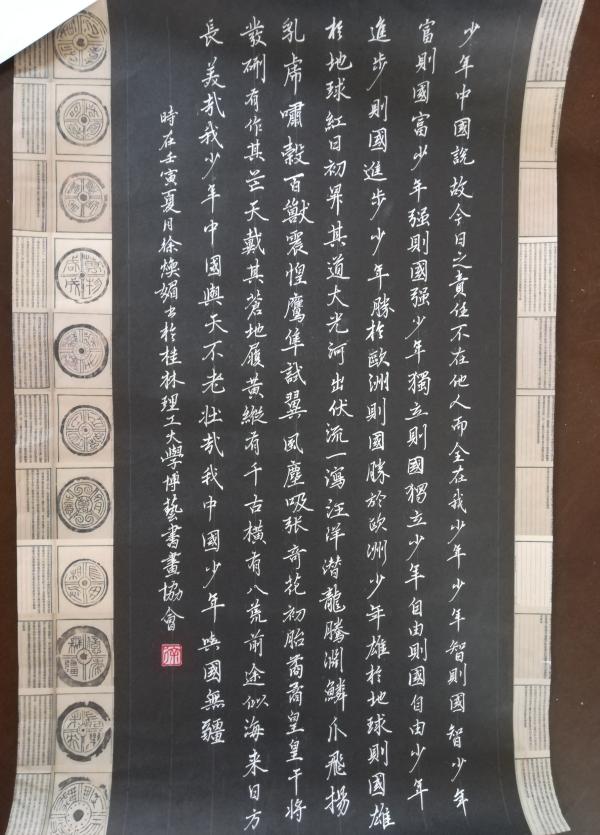 少年中國說故今日之責任不在他人而全在我少年少年智則國智少年
富則國富少年强則國强少年獨立則國獨立少年自由則國自由少年
進步則國進步少年勝於歐洲則國勝於歐洲少年雄於地球則國雄
於地球紅日初昇其道大光河出伏流一瀉汪洋潜龍騰淵鱗爪飛揚
乳虎嘯穀百獸震惶鷹隼試翼風塵吸张奇花初胎矞矞皇皇干將
發硎有作其芒天戴其蒼地履黃縱有千古橫有八荒前途似海来日方
長美哉我少年中國與天不老壯哉我中國少年與國無疆
時在壬寅夏月徐煥媚書於桂林理工大學博藝書畫協會